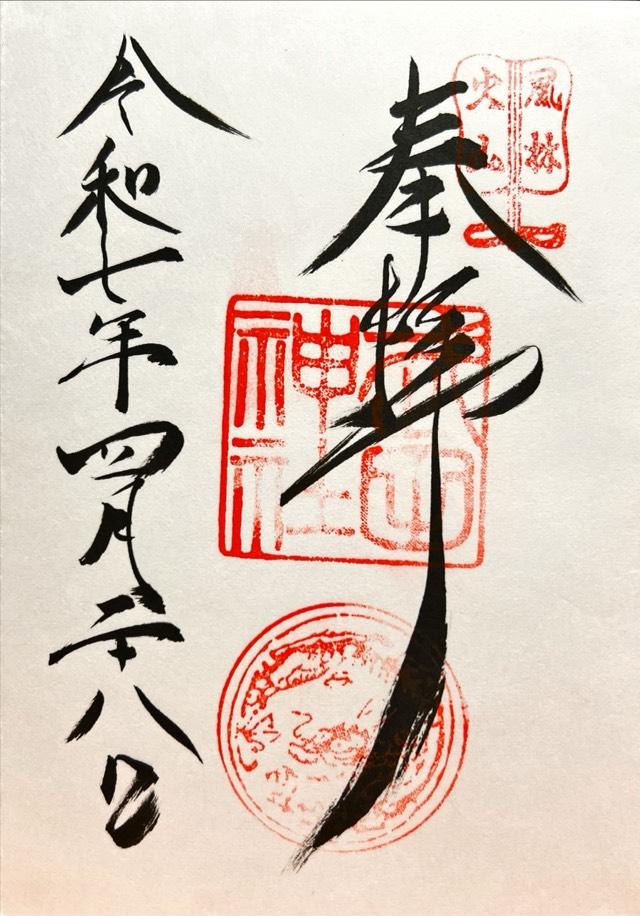 風林
火山
奉拝
武田
神社
令和七年四月二十八日